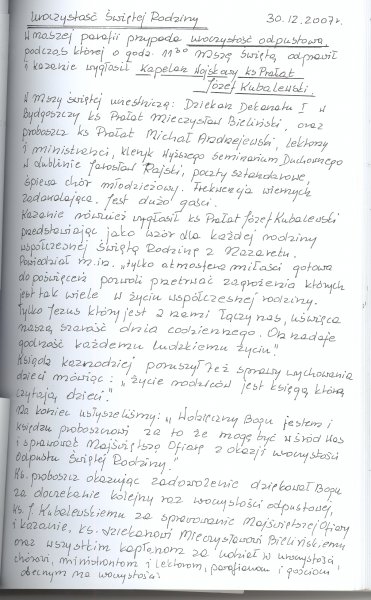 Uroczystość Świętej Rodziny 30.12.2007r.
W naszej parafii przypada uroczystość odpustowa,
podczas której o godz. 11³⁰ Mszę świętą odprawił
i kazanie wygłosił Kapelan Wojskowy ks Prałat
Józef Kubalewski.
W Mszy świętej uczestniczą: Dziekan Dekanatu I w
Bydgoszczy ks Prałat Mieczysław Bieliński, oraz
proboszcz ks Prałat Michał Andrzejewski, lektorzy
i ministranci, kleryk Wyższego Seminarium Duchownego
w Lublinie Jarosław Rajski, poczty sztandarowe,
śpiewa chór młodzieżowy. Frekwencja wiernych
zadawalająca. Jest dużo gości.
Kazanie również wygłosił ks Prałat Józef Kubalewski
przedstawiając jako wzór dla każdej rodziny
współczesnej Świętą Rodzinę z Nazaretu.
Powiedział m.in. „tylko atmosfera miłości gotowa
do poświęceń pozwoli przetrwać zagrożenia których
jest tak wiele w życiu współczesnej rodziny.
Tylko Jezus który jest z nami łączy nas, uświęca
naszą szarość dnia codziennego. On nadaje
godność każdemu ludzkiemu życiu."
Ksiądz kaznodziej poruszył też sprawy wychowania
dzieci mówiąc: „życie rodziców jest księgą którą
czytają dzieci."
Na koniec usłyszeliśmy: „Wdzięczny Bogu jestem i
księdzu proboszczowi za to że mogę być wśród Was
i sprawować Najświętszą Ofiarę z okazji uroczystości
Odpustu Świętej Rodziny."
Ks. proboszcz okazując zadowolenie dziękował Bogu
za doczekanie kolejny raz uroczystości odpustowej,
ks. J. Kubalewskiemu za sprawowanie Najświętszej Ofiary
i kazanie, ks. dziekanowi Mieczysławowi Bielińskiemu
oraz wszystkim kapłanom za udział w uroczystości
chórowi, ministrantom i lektorom, parafianom i gościom
obecnym na uroczystości.